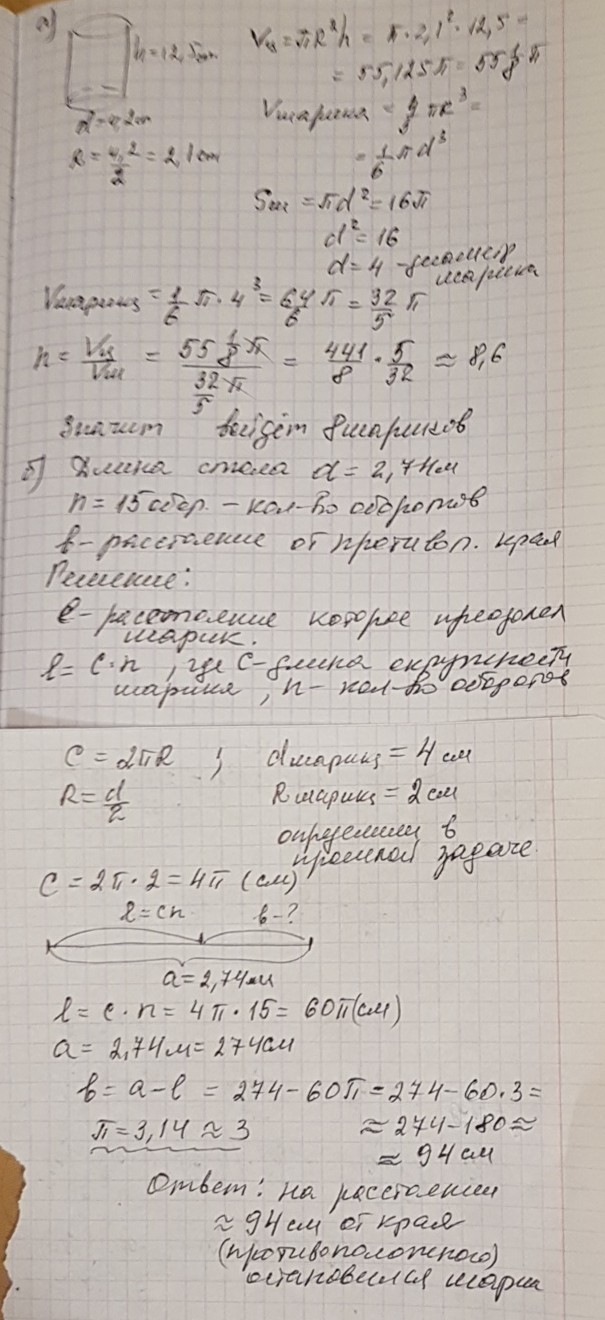 а) h = 12,5 см Vц = πR²h = π · 2,1² · 12,5 =
= 55,125π = 55 1/8 π
d = 4,2 см
Vшарика = 4/3 πR³ =
R = 4,2/2 = 2,1 см
= 1/6 πd³
Sш = πd² = 16π
d² = 16
d = 4 - диаметр
шарика
Vшарика = 1/6 π · 4³ = 64/6 π = 32/5 π
n = Vц/Vш = 55 1/8 π / 32/5 π = 441/8 · 5/32 ≈ 8,6
Значит выйдет 8 шариков
б) Длина стола d = 2,74 м
n = 15 обор. - кол-во оборотов
b - расстояние от противоп. края
Решение:
l - расстояние которое преодолел
шарик.
l = C · n , где C - длина окружности
шарика , n - кол-во оборотов
C = 2πR ; dшарика = 4 см
R = d/2 Rшарика = 2 см
определили в
прошлой задаче
C = 2π · 2 = 4π (см)
l = Cn b - ?
a = 2,74 м
l = c · n = 4π · 15 = 60π (см)
a = 2,74 м = 274 см
b = a - l = 274 - 60π = 274 - 60 · 3 =
π = 3,14 ≈ 3 ≈ 274 - 180 ≈
≈ 94 см
Ответ: на расстоянии
≈ 94 см от края
(противоположного)
остановился шарик